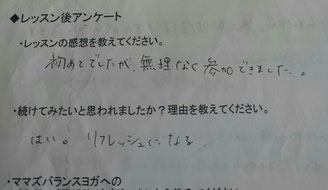 ◆レッスン後アンケート
・レッスンの感想を教えてください。
初めてでしたが、無理なく参加できました。
・続けてみたいと思われましたか？理由を教えてください。
はい。リフレッシュになる
・ママズバランスヨガへの